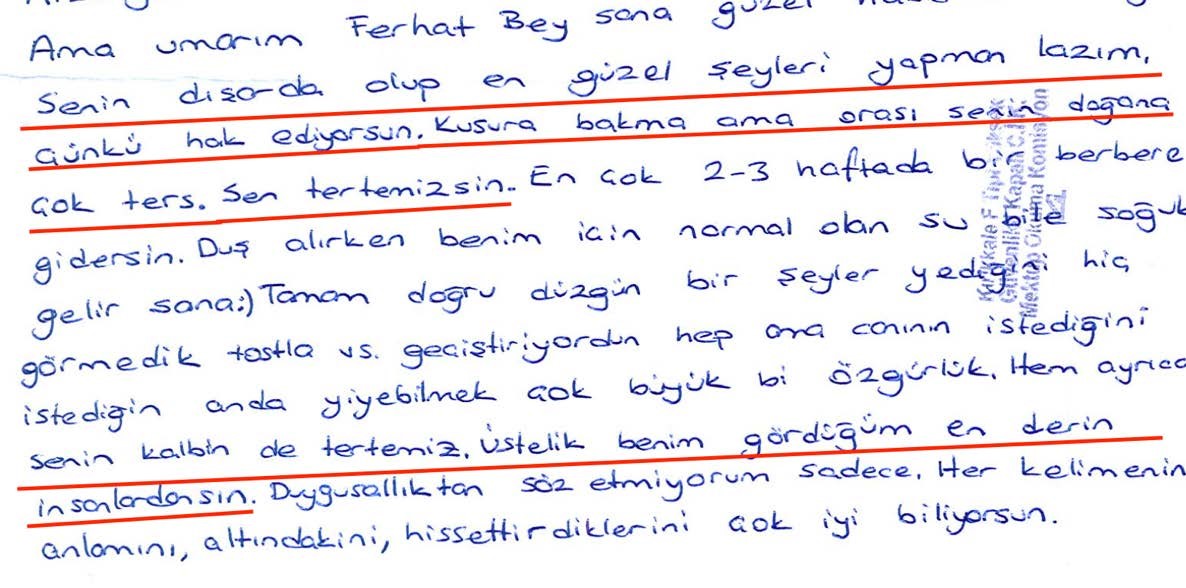 Ama umarım Ferhat Bey sana güzel
Senin dışarda olup en güzel şeyleri yapman lazım.
Çünkü hak ediyorsun. Kusura bakma ama orası senin doğana
çok ters. Sen tertemizsin. En çok 2-3 haftada bir berbere
gidersin. Duş alırken benim için normal olan su bile soğuk
gelir sana:) Tamam doğru düzgün bir şeyler yediğini hiç
görmedik tostla vs. geçiştiriyordun hep ama canının istediğini
istediğin anda yiyebilmek çok büyük bi özgürlük. Hem ayrıca
senin kalbin de tertemiz. Üstelik benim gördüğüm en derin
insanlardansın. Duygusallıktan söz etmiyorum sadece. Her kelimenin
anlamını, altındakini, hissettirdiklerini çok iyi biliyorsun.
Kırıkkale F Tipi Yüksek
Güvenlikli Kapalı C.İ.K.
Mektup Okuma Komisyon